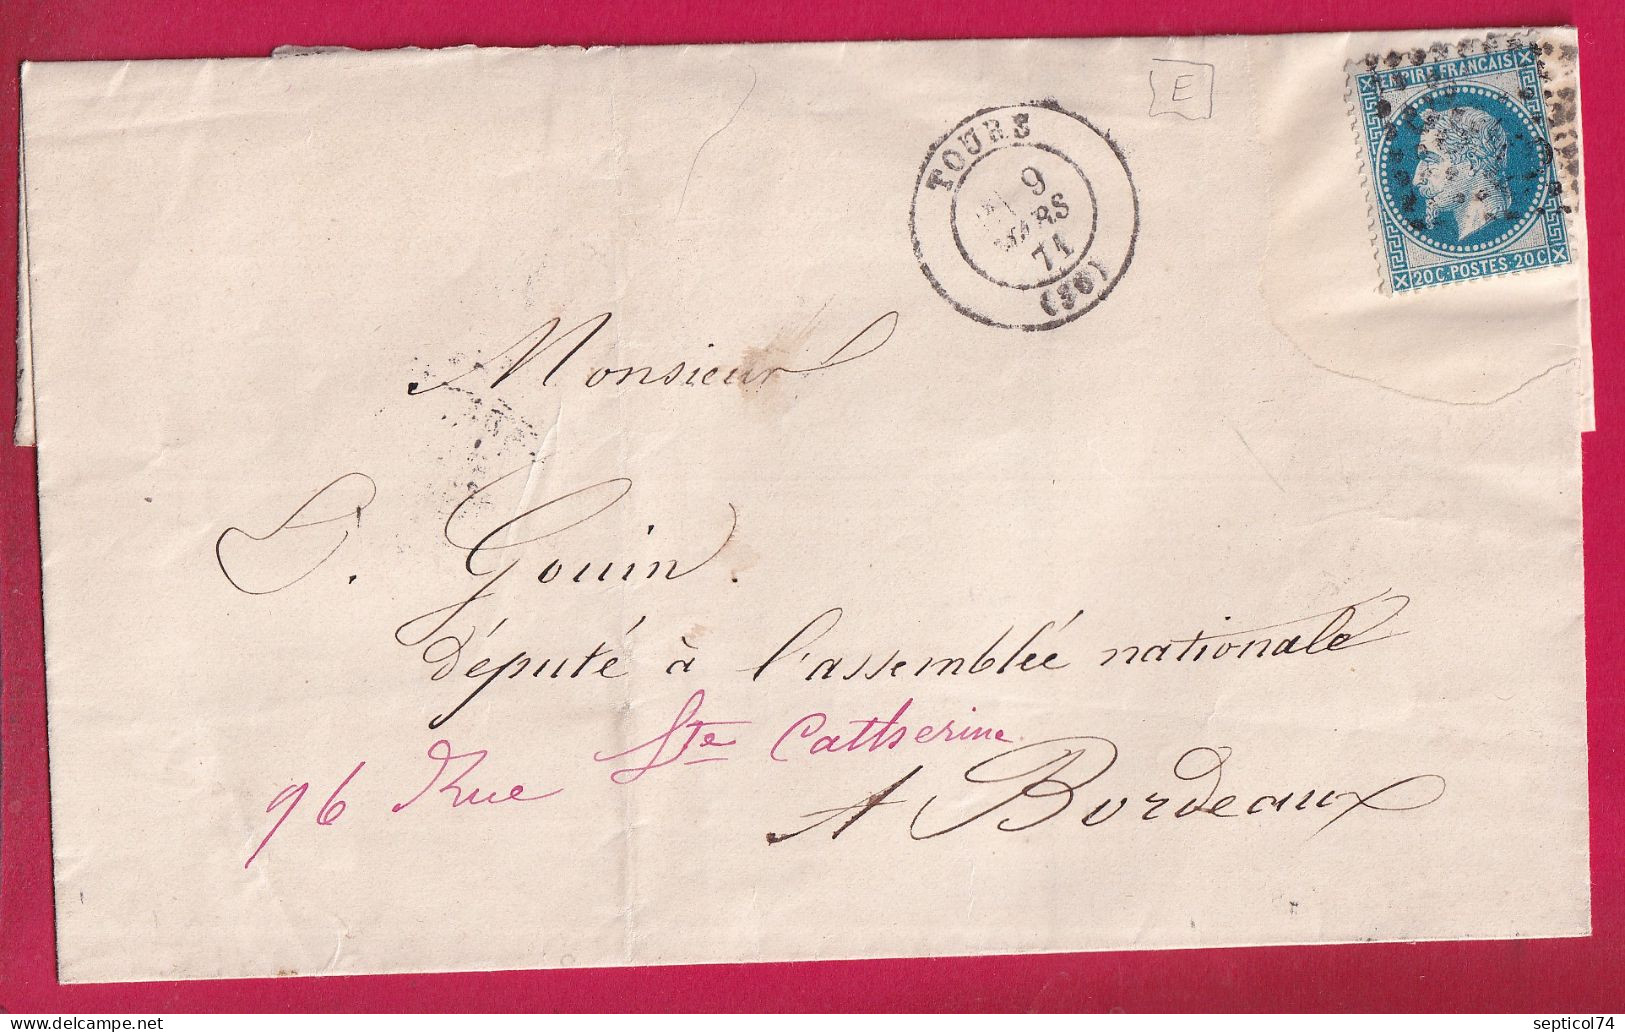 E
EMPIRE FRANCAIS
20 C. POSTES. 20 C
TOURS
9
MARS
71
(36)
Monsieur
E. Gouin.
député à l'assemblée nationale
96 Rue Ste Catherine
A Bordeaux
delcampe.net
septicol74